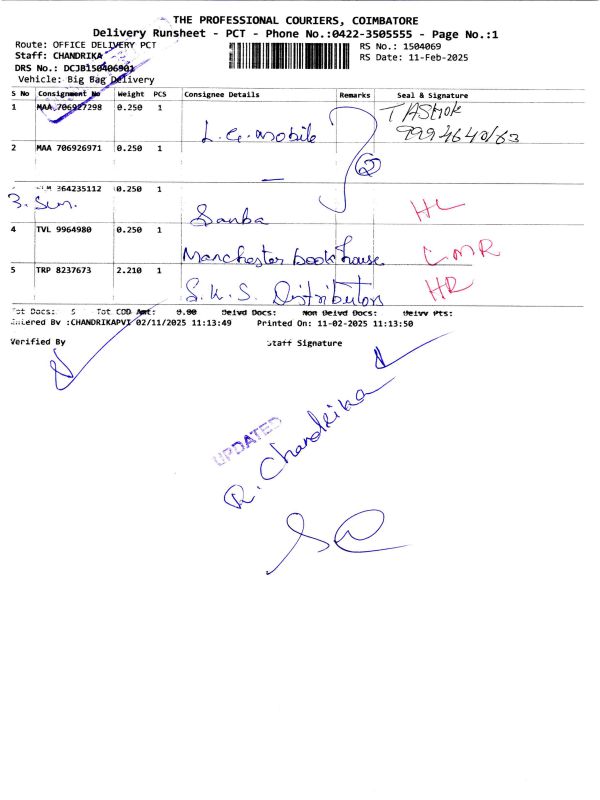 THE PROFESSIONAL COURIERS, COIMBATORE
Delivery Runsheet - PCT - Phone No.:0422-3505555 - Page No.:1
Route: OFFICE DELIVERY PCT
RS No.: 1504069
Staff: CHANDRIKA
RS Date: 11-Feb-2025
DRS No.: DCJB150406901
Vehicle: Big Bag Delivery
S No Consignment No Weight PCS Consignee Details Remarks Seal & Signature
1 MAA 706927298 0.250 1 L.G. mobile
T Ashok
2 MAA 706926971 0.250 1
2
364235112 0.250 1 HL
3.
4 TVL 9964980 0.250 1 Manchester book house
5 TRP 8237673 2.210 1 S.K.S. Distributors HR
Tot Docs: 5 Tot COD Amt: 0.00 Delvd Docs: Non Delvd Docs: Delvy Pts:
Entered By :CHANDRIKAPVI 02/11/2025 11:13:49 Printed On: 11-02-2025 11:13:50
Verified By Staff Signature
UPDATED
R. Chandrika